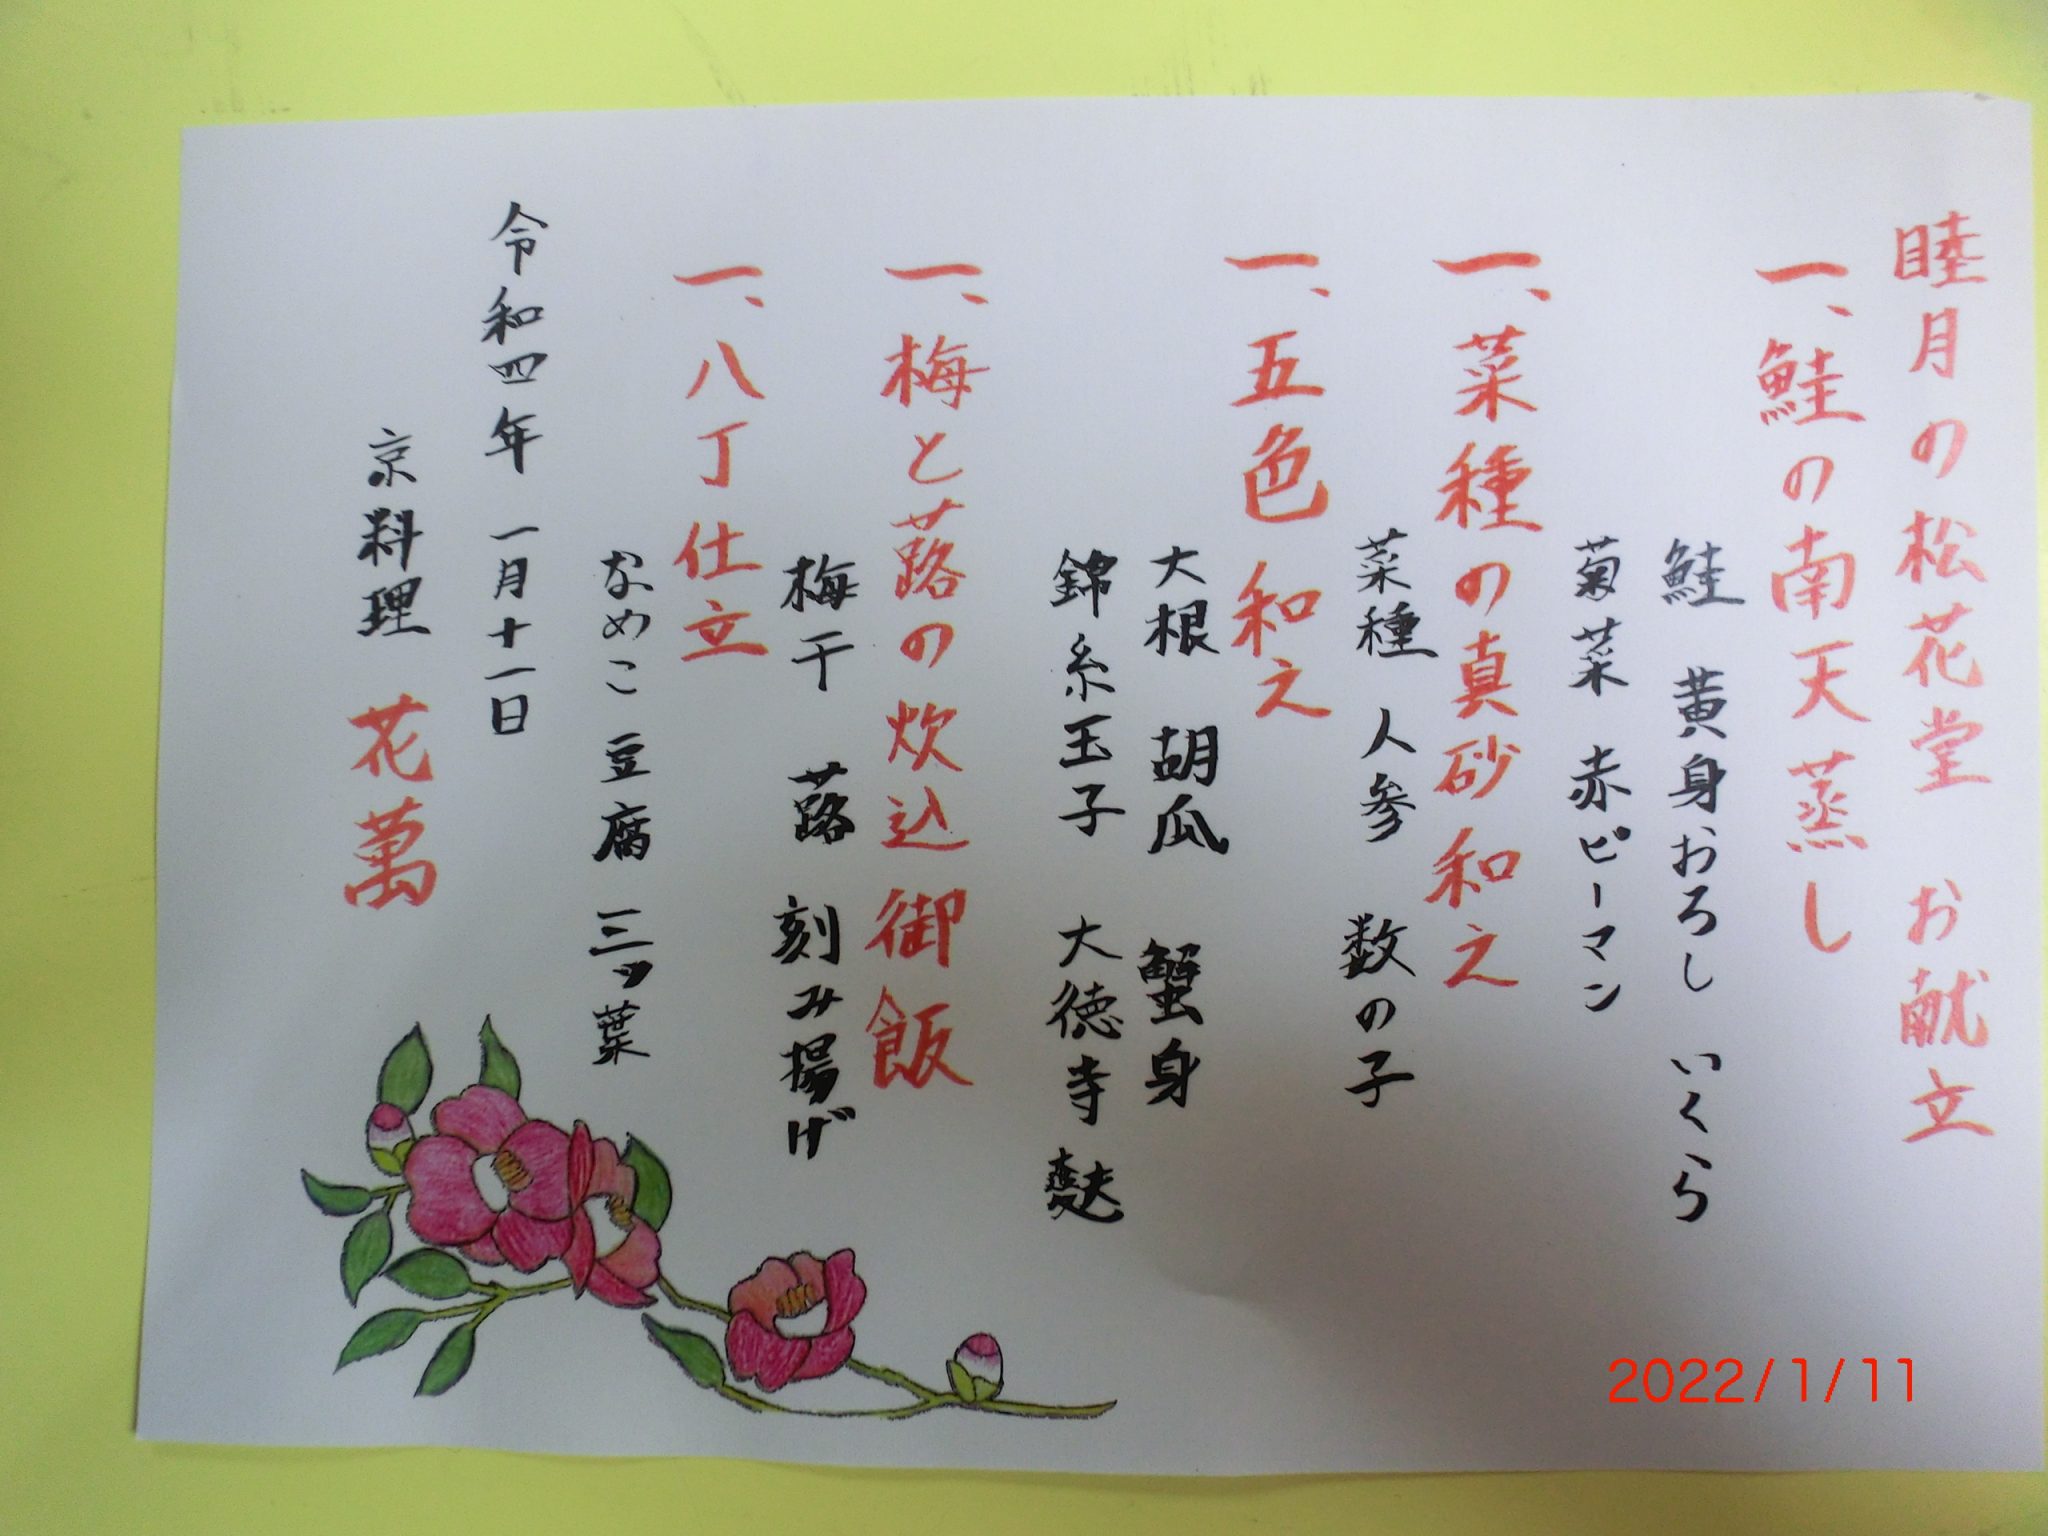 睦月の松花堂 お献立
一、鮭の南天蒸し
鮭 黄身おろし いくら
菊菜 赤ピーマン
一、菜種の真砂和え
菜種 人参 数の子
一、五色和え
大根 胡瓜 蟹身
錦糸玉子 大徳寺麩
一、梅と蕗の炊込御飯
梅干 蕗 刻み揚げ
一、八丁仕立
なめこ 豆腐 三ッ葉
令和四年 一月十一日
京料理 花萬
2022/1/11